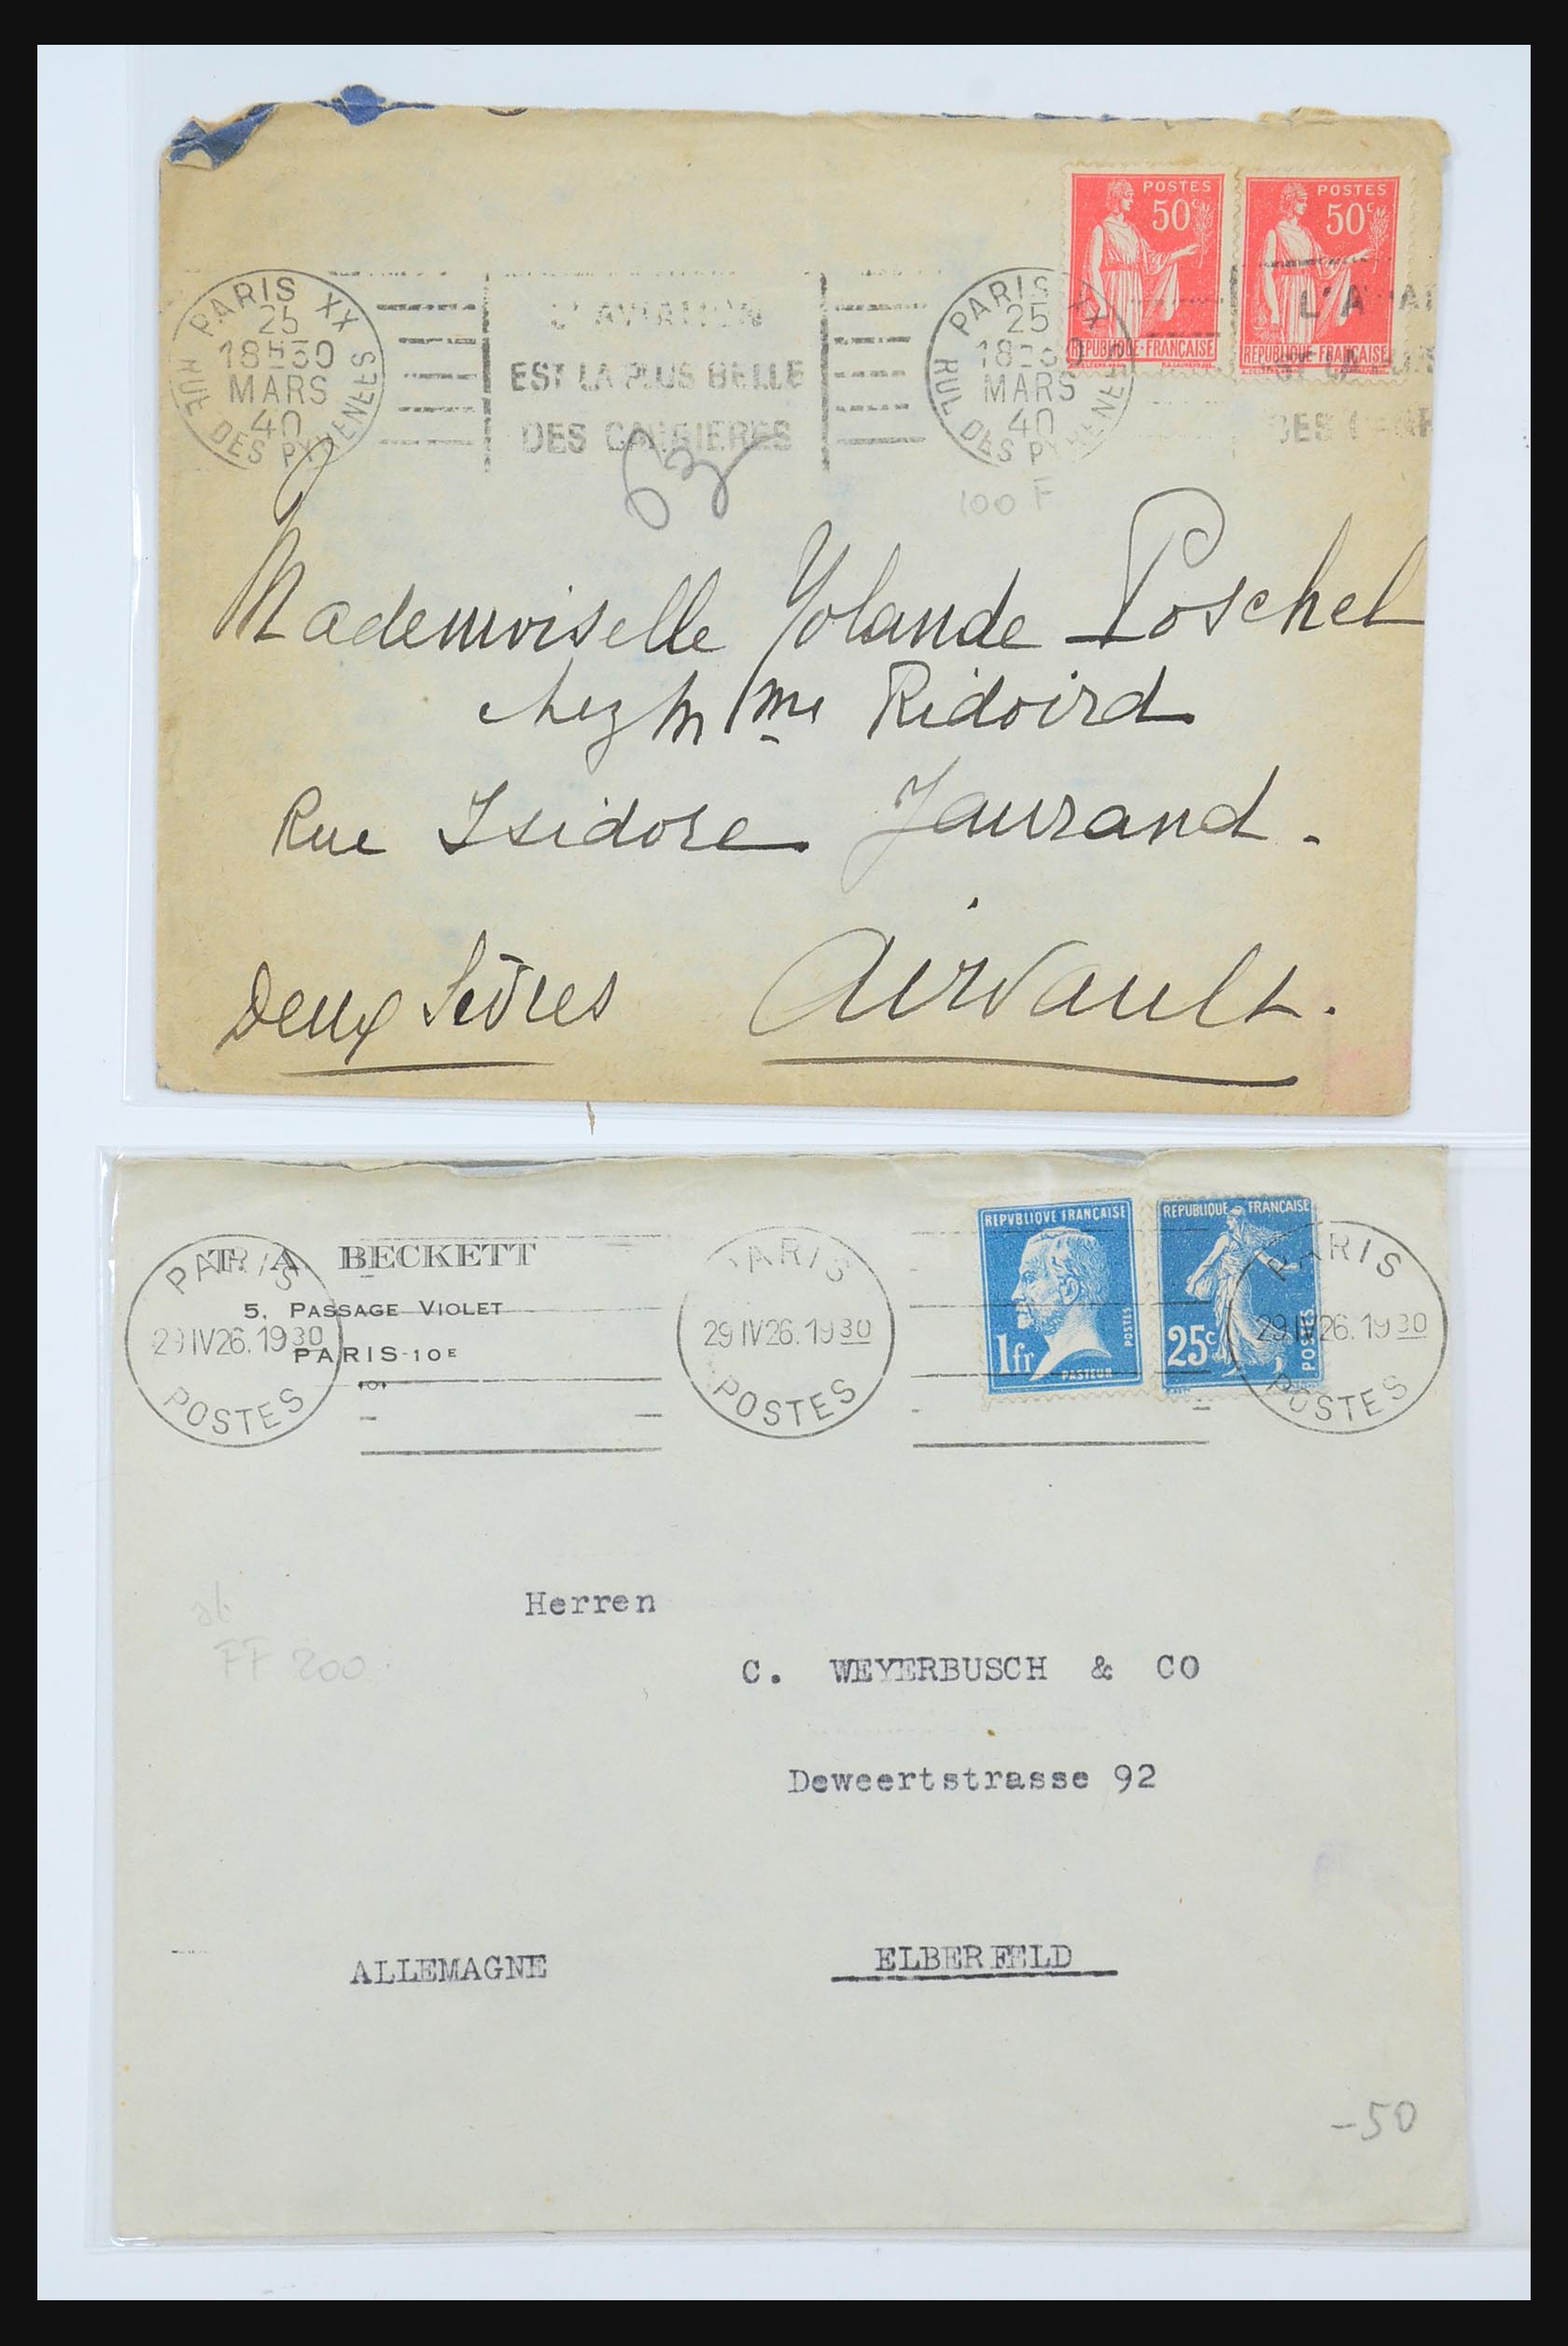 POSTES
50c
REPUBLIQUE-FRANÇAISE
POSTES
50c
REPUBLIQUE-FRANÇAISE
PARIS XX
25
18H30
MARS
40
RUE DES PYRENEES
L'AVIATION
EST LA PLUS BELLE
DES CARRIERES
PARIS XX
25
18H30
MARS
40
RUE DES PYRENEES
100 F
Mademoiselle Yolande Poschel
chez Mme Ridoird
Rue Isidore Jaurand.
Deux Sèvres Airvault.
T. A BECKETT
5, PASSAGE VIOLET
PARIS-10E
PARIS
29 IV 26. 19 30
POSTES
PARIS
29 IV 26. 19 30
POSTES
REPVBLIQVE FRANÇAISE
1fr
POSTES
PASTEUR
REPUBLIQUE FRANÇAISE
25c
POSTES
PARIS
29 IV 26. 19 30
POSTES
FF 200
Herren
C. WEYERBUSCH & CO
Deweertstrasse 92
ALLEMAGNE ELBERFELD
-50